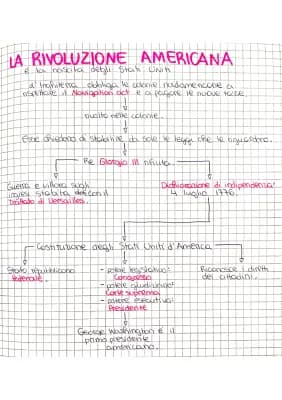 LA RIVOLUZIONE AMERICANA
E la nascita degli Stati Uniti
L'Inghilterra obbliga le colonie nordamericane a
rispettare il Navigation act e a pagare le nuove tasse.
rivolta nelle colonie.
Esse chiedono di stabilire da sole le leggi che le riguardano.
Re Giorgio III rifiuta
Guerra e vittoria sugli
inglesi stabilita con il
trattato di Versailles.
Dichiarazione di indipendenza
4 luglio 1776.
Costituzione degli Stati Uniti d'America
Stato repubblicano
federale.
- potere legislativo:
Congresso
- potere giudiziario:
Corte suprema
- potere esecutivo:
Presidente
Riconosce i diritti
dei cittadini.
George Washington è il
primo presidente
americano.